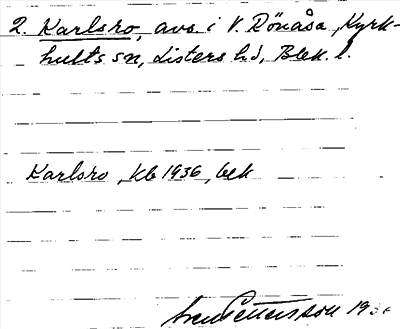 2. Karlsro, avs. i V. Rönåsa, Kyrk-
hults sn, Listers hd, Blek. l.
Karlsro, Kb 1936, bek
Pettersson 19